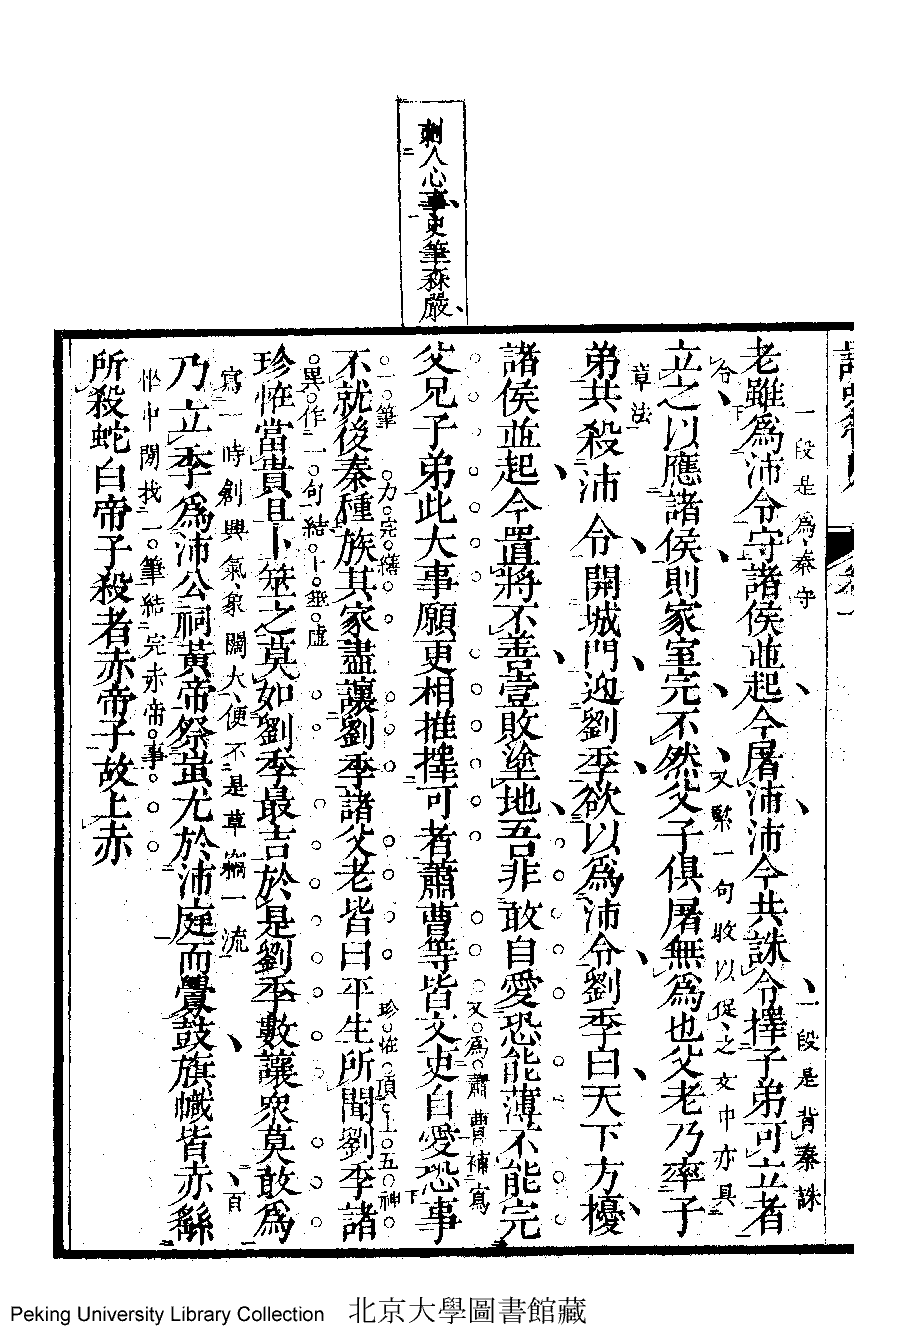 刺人心事史筆森嚴
老雖爲沛令守諸侯並起今屠沛沛今共誅令擇子弟可立者
一段是爲秦守
一段是背秦誅
令
立之以應諸侯則家室完不然父子俱屠無爲也父老乃率子
又繫一句收以促之文中亦具
章法
弟共殺沛令開城門迎劉季欲以爲沛令劉季曰天下方擾
諸侯並起今置將不善壹敗塗地吾非敢自愛恐能薄不能完
父兄子弟此大事願更相推擇可者蕭曹等皆文吏自愛恐事
又爲蕭曹補寫
一筆
不就後秦種族其家盡讓劉季諸父老皆曰平生所聞劉季諸
力完繕
珍怪項上五神
珍怪當貴且卜筮之莫如劉季最吉於是劉季數讓眾莫敢爲
異作一句結上極虛
乃立季爲沛公祠黃帝祭蚩尤於沛庭而釁鼓旗幟皆赤繇
寫一時創興氣象闊大便不是草竊一流
百
所殺蛇白帝子殺者赤帝子故上赤
忙中閒找一筆結完赤帝事
Peking University Library Collection 北京大學圖書館藏